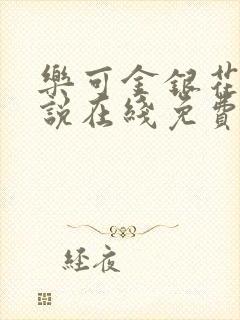 樂可金銀花
說在綫免費
經夜